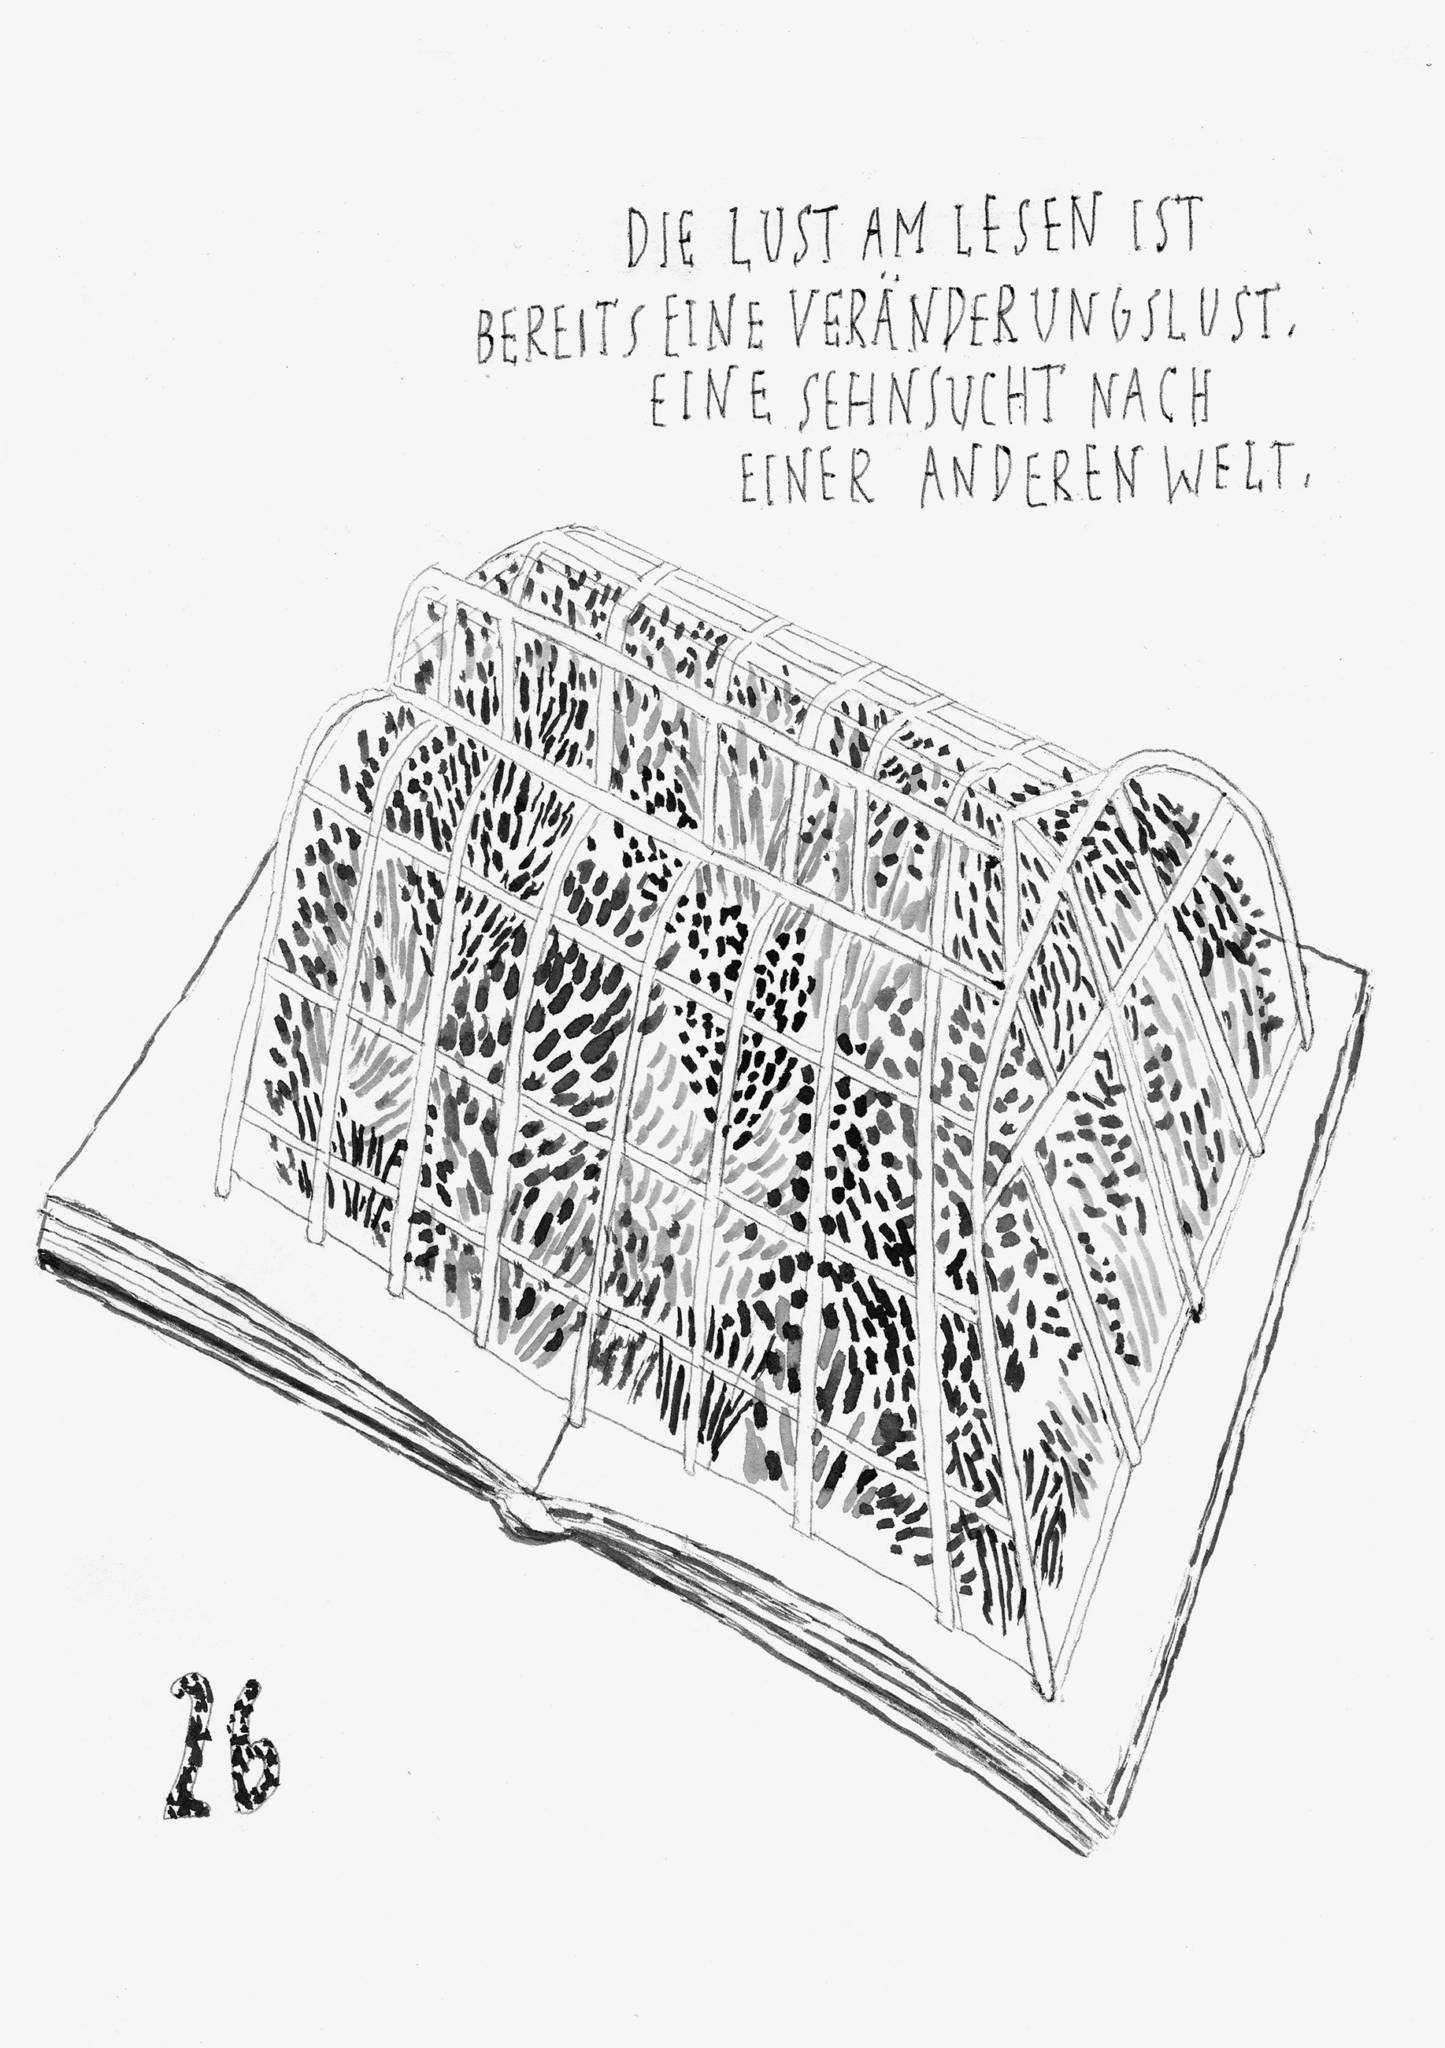 DIE LUST AM LESEN IST
BEREITS EINE VERÄNDERUNGSLUST.
EINE SEHNSUCHT NACH
EINER ANDEREN WELT.
26